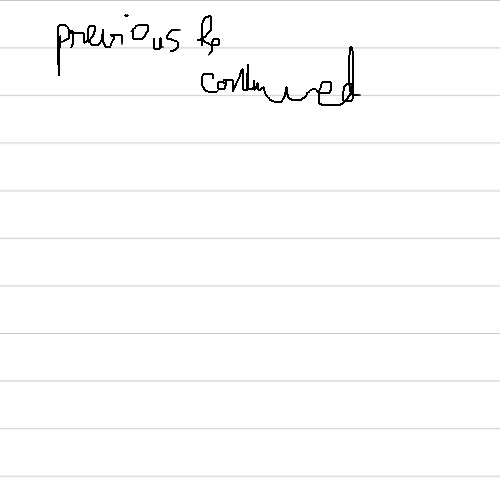 previous be
continued